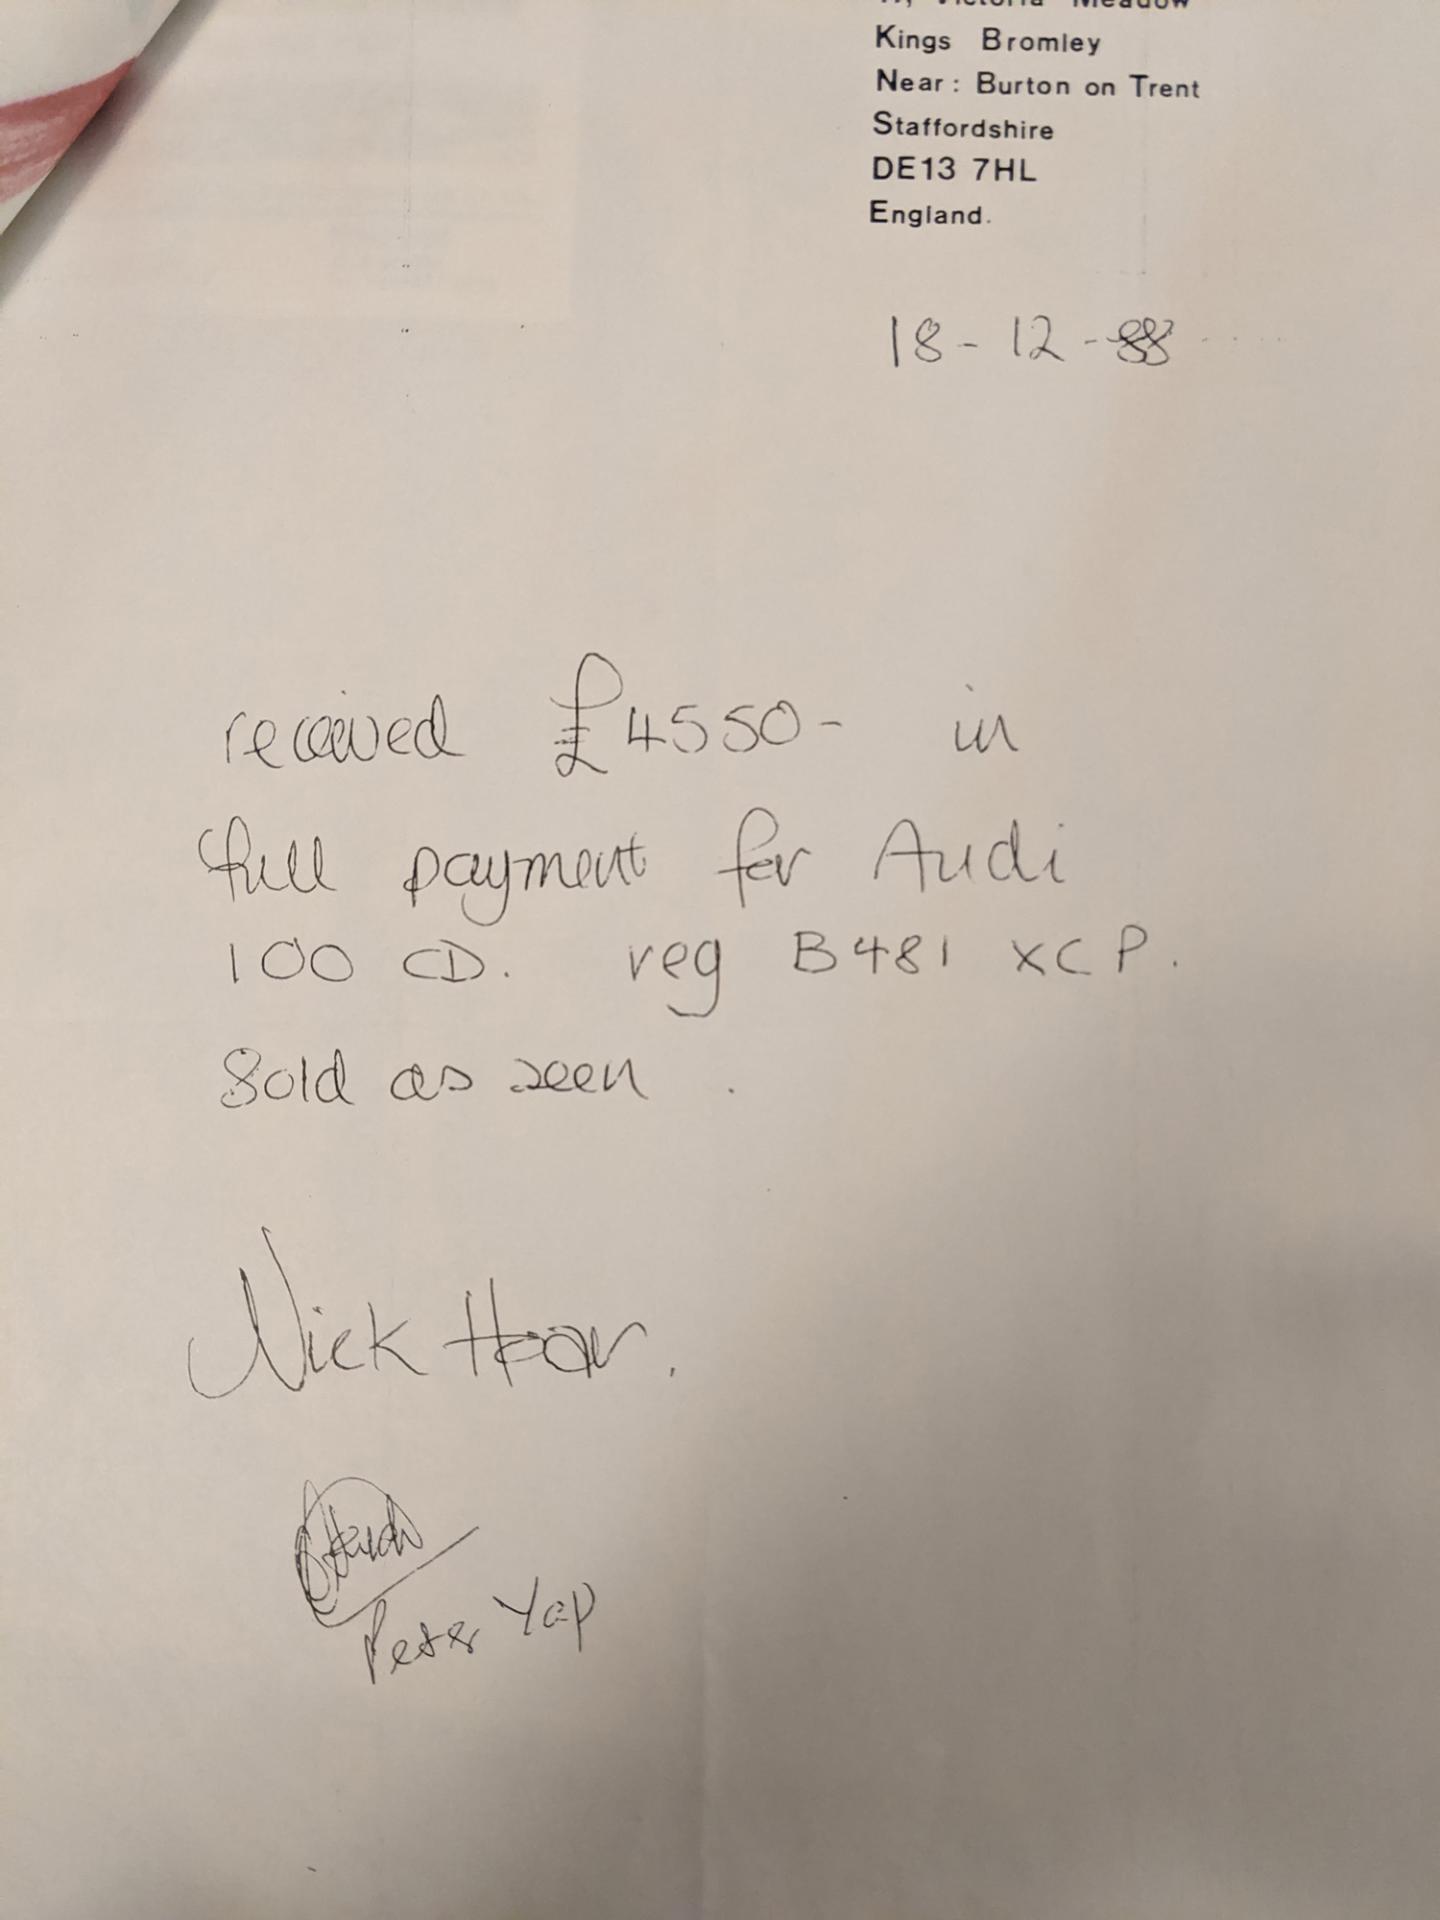 Victoria Meadow
Kings Bromley
Near: Burton on Trent
Staffordshire
DE13 7HL
England.
18-12-88
received £4550- in
full payment for Audi
100 CD. reg B481 XCP.
Sold as seen.
Nick Hoar.
Peter Yap